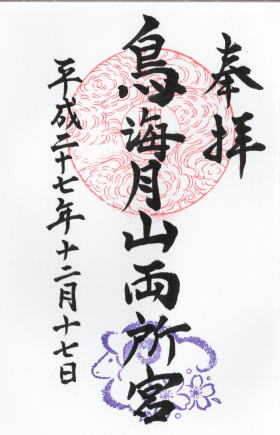 奉拝
鳥海月山両所宮
平成二十七年十二月十七日